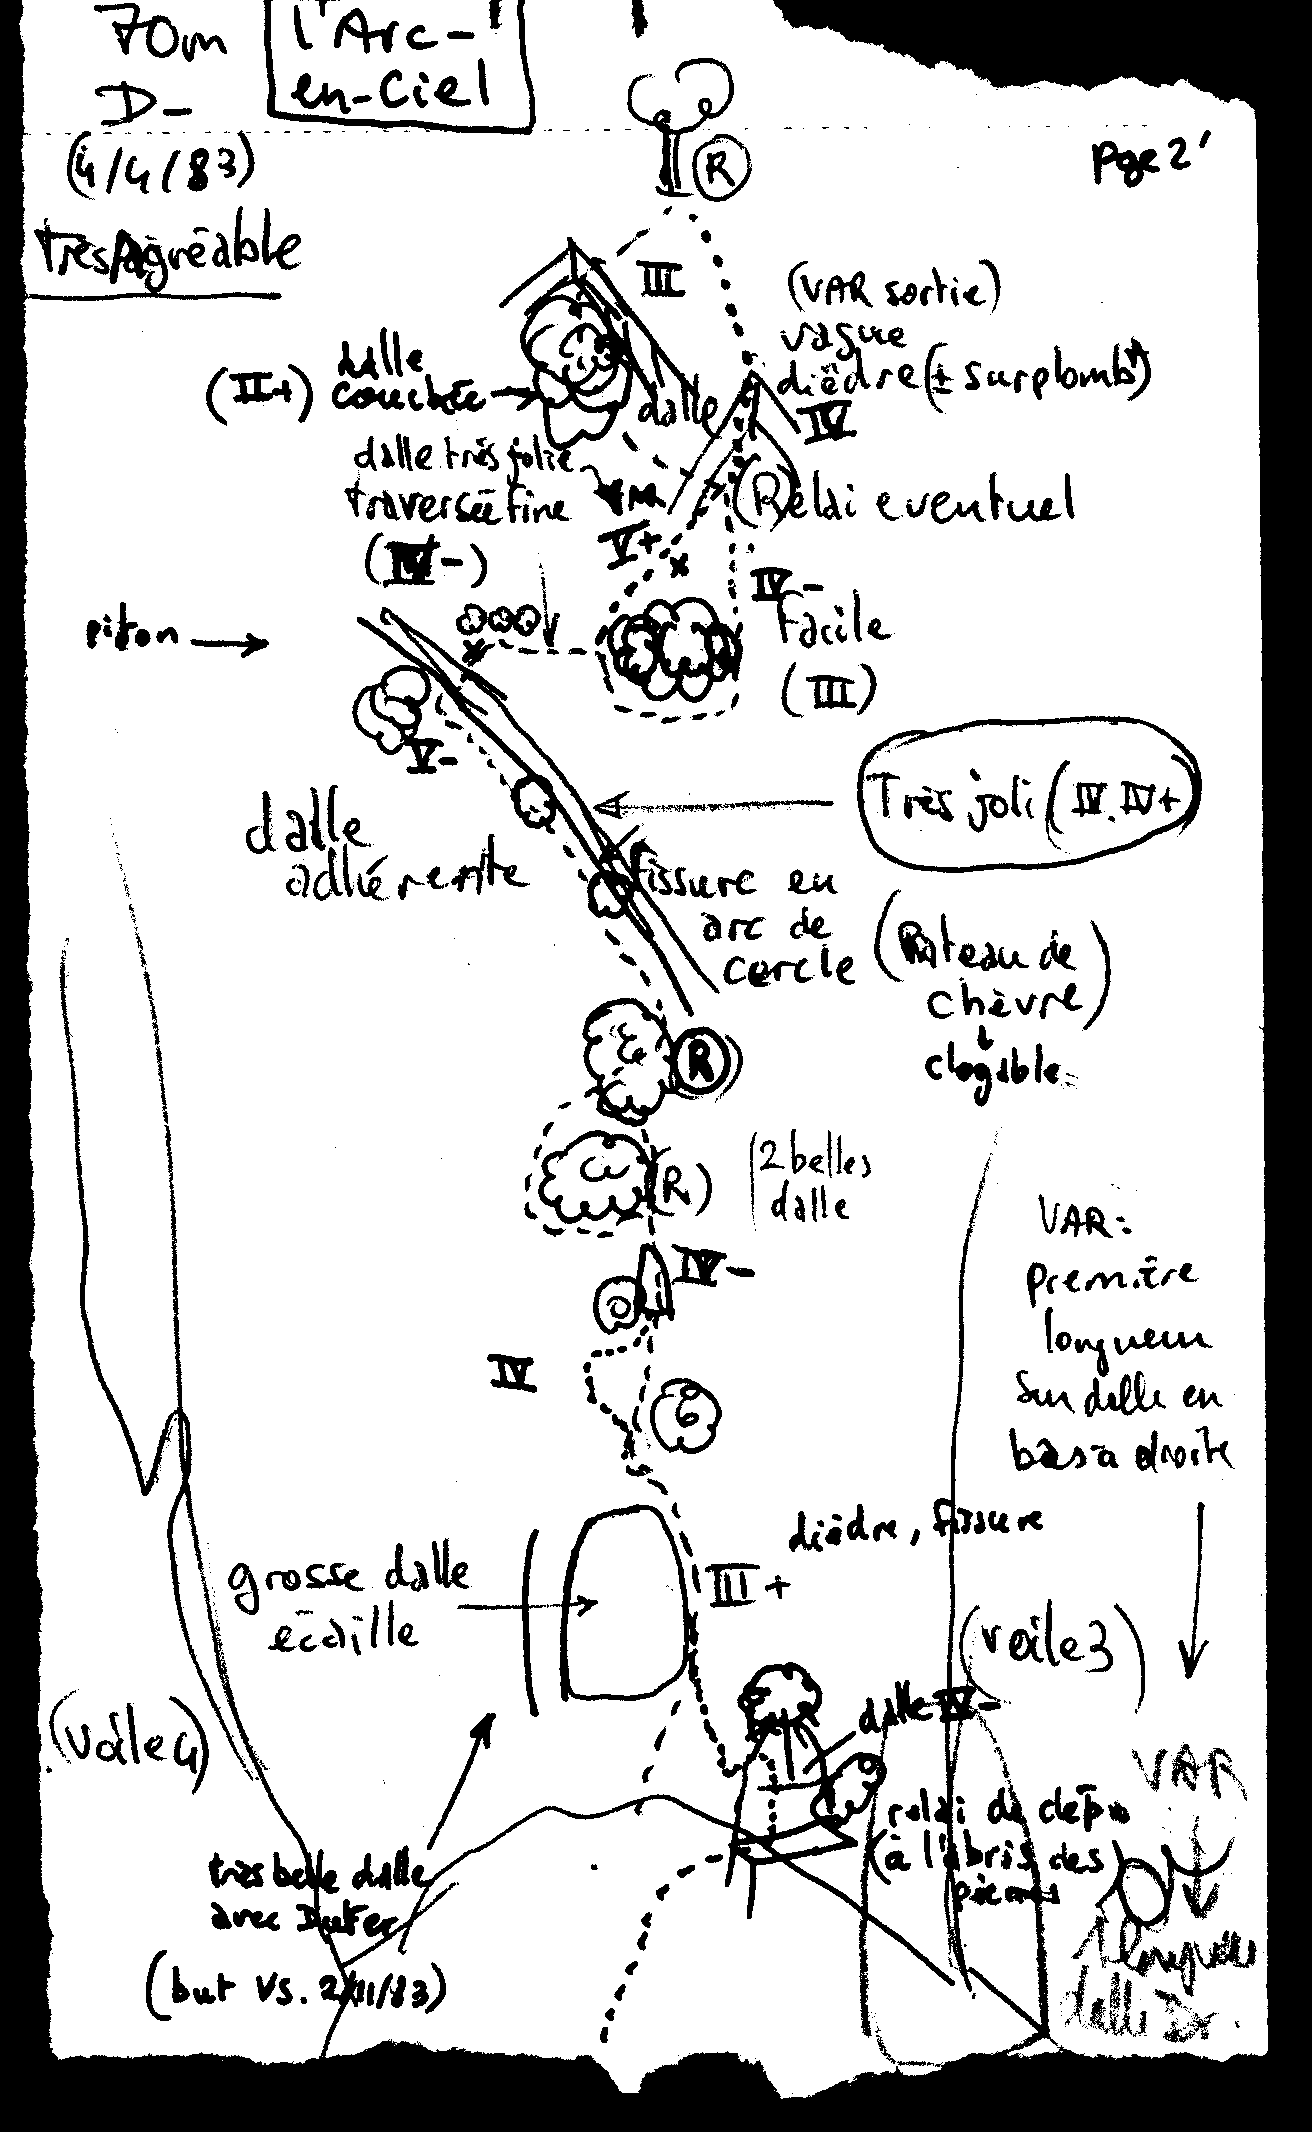 70m
D-
(4/4/83)
très agréable
l'Arc-
en-Ciel
R
Pge 2'
III
(VAR sortie)
vague
dièdre (± surplombt)
IV
(II+) dalle
couchée
dalle
dalle très jolie
traversée fine
(IV-)
V+
(R)elai eventuel
IV-
facile
(III)
piton
V-
Très joli (IV. IV+)
dalle
adhérente
fissure en
arc de
cercle
(Rateau de
chèvre)
clogable
R
(R)
2 belles
dalle
IV-
IV
VAR:
première
longueur
sur dalle en
bas à droite
dièdre, fissure
III+
grosse dalle
écaille
(voile 3)
(voile 4)
dalle IV-
VAR
relai de dépa
(à l'abris des
pierres)
très belle dalle
avec
(but VS. 2/11/83)
1 longueur
dalle Dr.